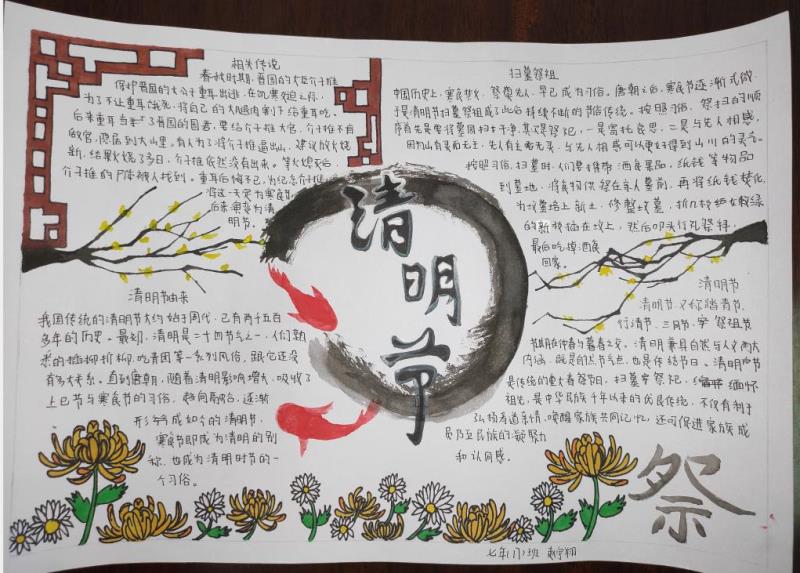 相关传说
春秋时期,晋国的大臣介子推
保护晋国的大公子重耳出逃,在饥寒交迫之际,
为了不让重耳饿死,将自己的大腿肉割下给重耳吃。
后来重耳当上了晋国的国君,要给介子推大官,介子推不肯
做官,隐居到大山里。有人为了将介子推逼出山,建议放火烧
新,结果火烧了多日,介子推依然没有出来。等火熄灭后,
介子推的尸体被人找到。重耳后悔不已,为纪念介子推
将这一天定为寒食节
后来演变为清
明节。
扫墓祭祖
中国历史上,寒食禁火,祭奠先人,早已成为习俗。唐朝之后,寒食节逐渐式微
于是清明节扫墓祭祖成了此后持续不断的节俗传统。按照习俗,祭扫的顺
序首先是要将墓园扫干净,其次是祭祀,一是寄托哀思,二是与先人相感,
因为山有灵而无主,先人有主而无灵,与先人相感可以更好得到山川的灵气。
按照习俗,扫墓时,人们要携带酒食果品,纸钱等物品
到墓地,将食物供祭在亲人墓前,再将纸钱焚化,
为坟墓培上新土,修整坟墓,折几枝嫩绿
的新枝插在坟上,然后叩头行礼祭拜,
最后吃掉酒食
回家。
清明节
清明节由来
我国传统的清明节大约始于周代,已有两千五百
多年的历史。最初,清明是二十四节气之一,们熟
悉的插柳折柳,吃青团等一系列风俗,跟它还没
有多大关系。直到唐朝,随着清明影响增大,吸收了
上巳节与寒食节的习俗,逐渐
形成如今的清明节,
寒食节即成为清明的别
称,也成为清明时节的一
个习俗。
清明节
清明节,又称踏青节,
行清节、三月节、祭祖节
节期在仲春与暮春之交。清明兼具自然与人文两大
内涵,既是自然节气点,也是传统节日。清明节
是传统的重大春祭节日,扫墓祭祀、缅怀
祖先,是中华民族千年以来的优良传统,不仅有利于
弘扬孝道亲情、唤醒家族共同记忆,还可促进家族成
员乃至民族的凝聚力
和认同感。
祭
七年(1)班